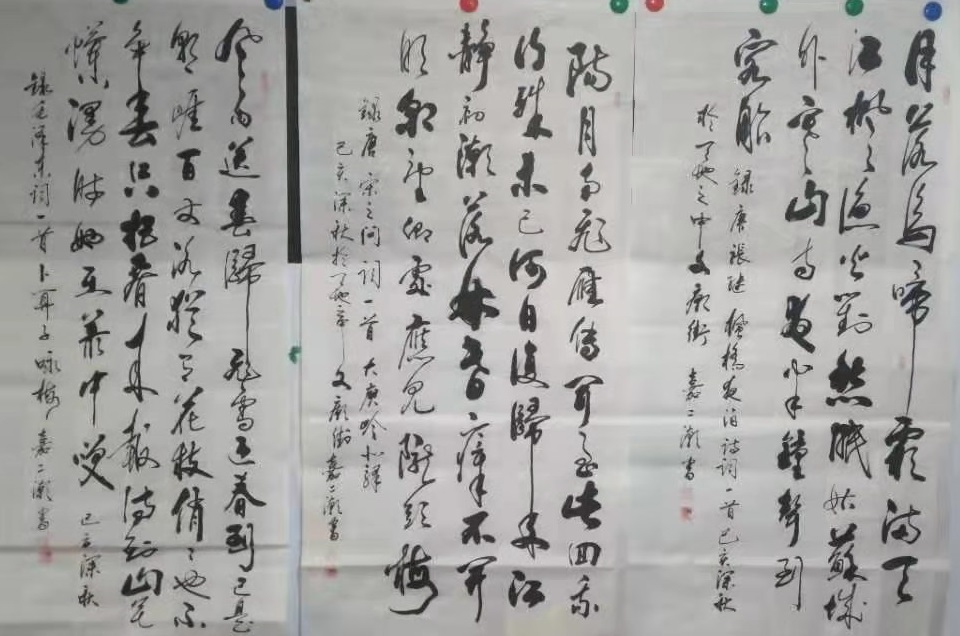 月落烏啼霜滿天
江楓漁火對愁眠姑蘇城
外寒山寺夜半鐘聲到
客船
錄唐張継楓橋夜泊詩詞一首己亥深秋
於之中文廟街 嘉二書
陽月南飛雁傳聞至此回我
行殊未已何日復歸来江
靜初潮落林昏瘴不開
明朝望鄉處應見隴頭梅
錄唐宋之问詞一首大庾岭北驛
己亥深秋於文廟街嘉二書
風雨送春歸飛雪迎春到已是
懸崖百丈冰猶有花枝俏俏也不
争春只把春来報待到山花
爛漫時她在叢中笑 己亥深秋
錄毛泽東詞一首卜算子咏梅 嘉二書